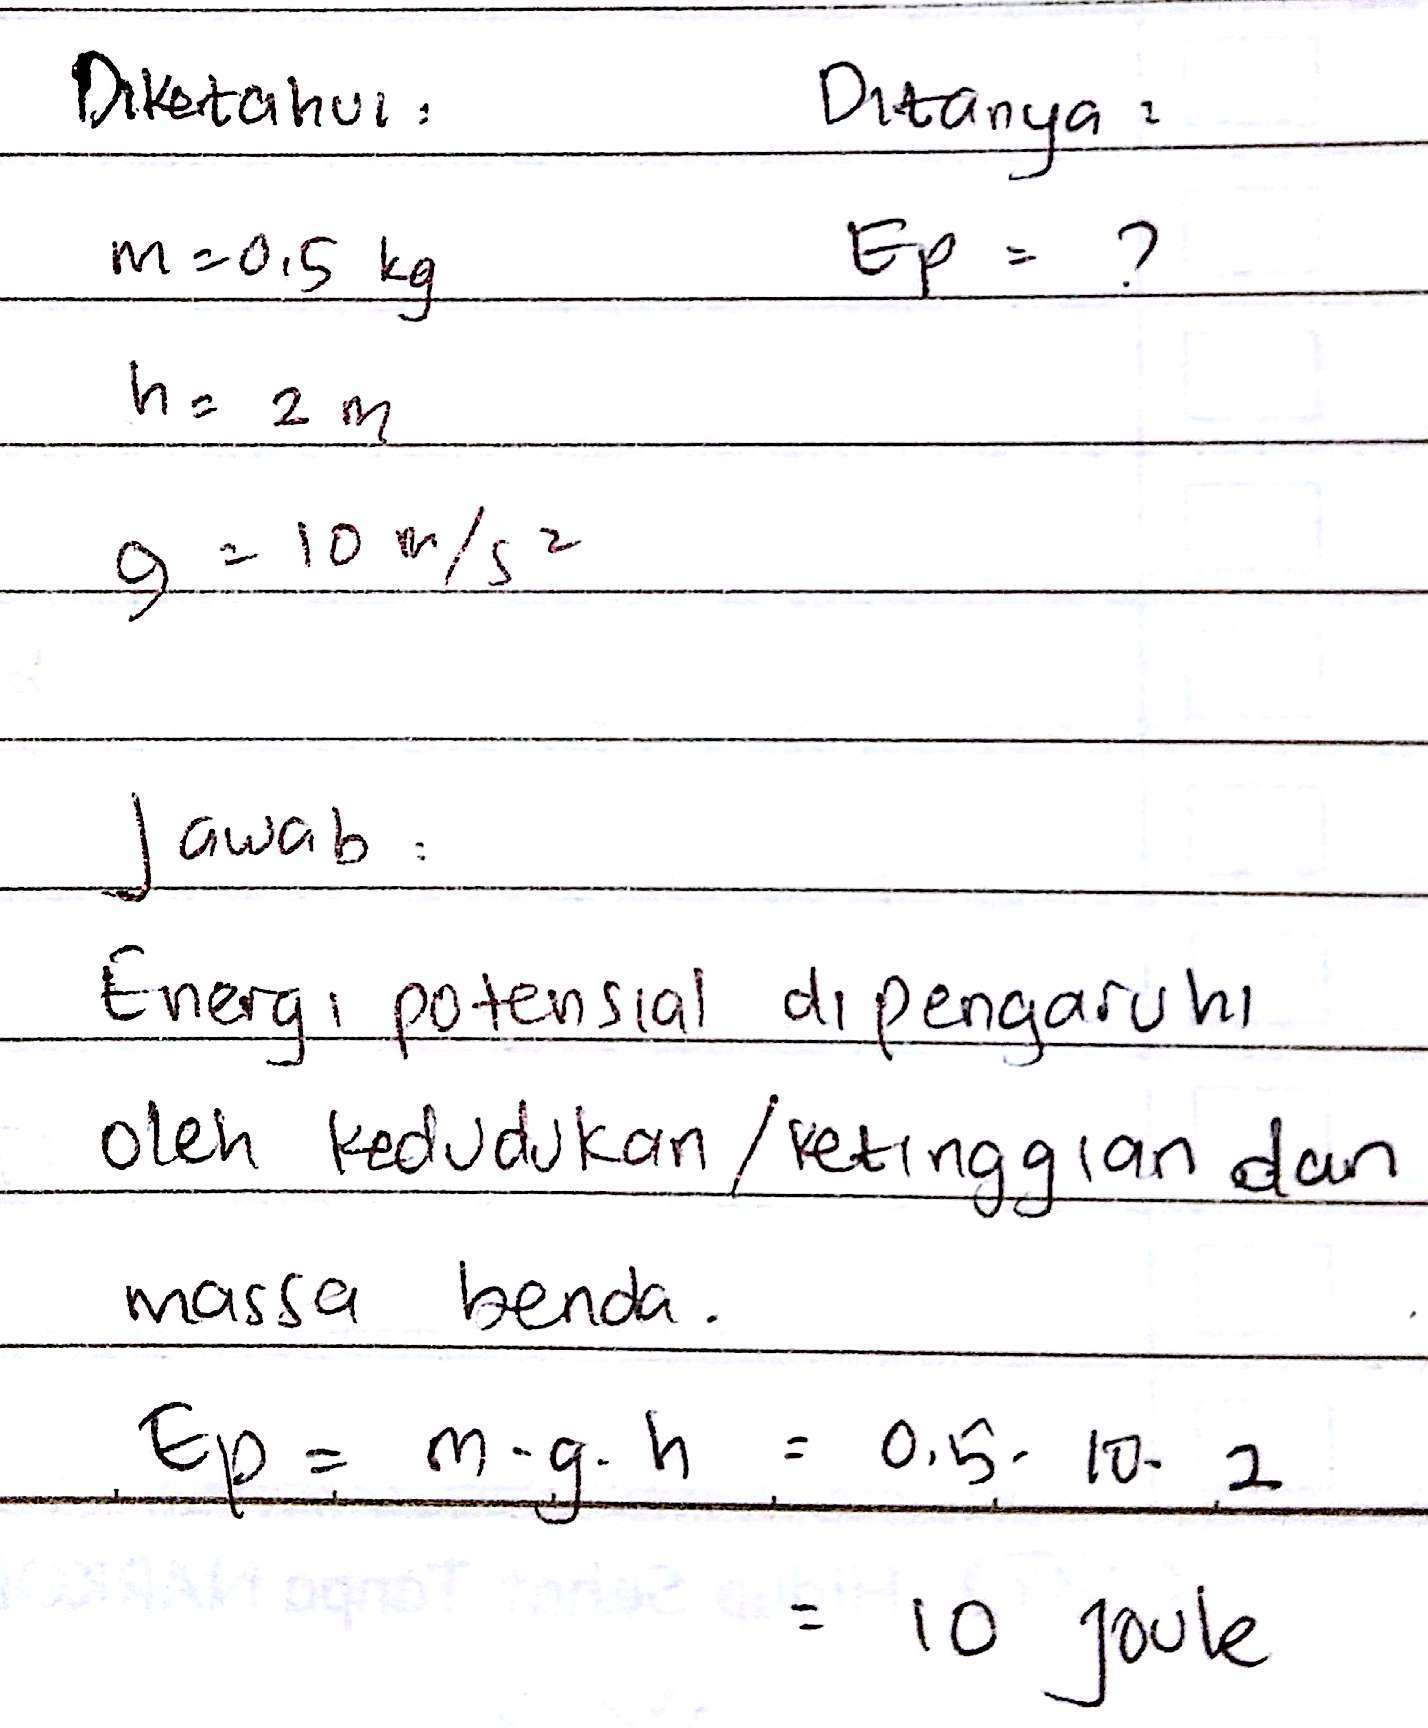 Diketahui : Ditanya :
m = 0,5 kg Ep = ?
h = 2 m
g = 10 m/s²
Jawab :
Energi potensial dipengaruhi
oleh kedudukan / ketinggian dan
massa benda.
Ep = m . g . h = 0,5 . 10 . 2
= 10 joule